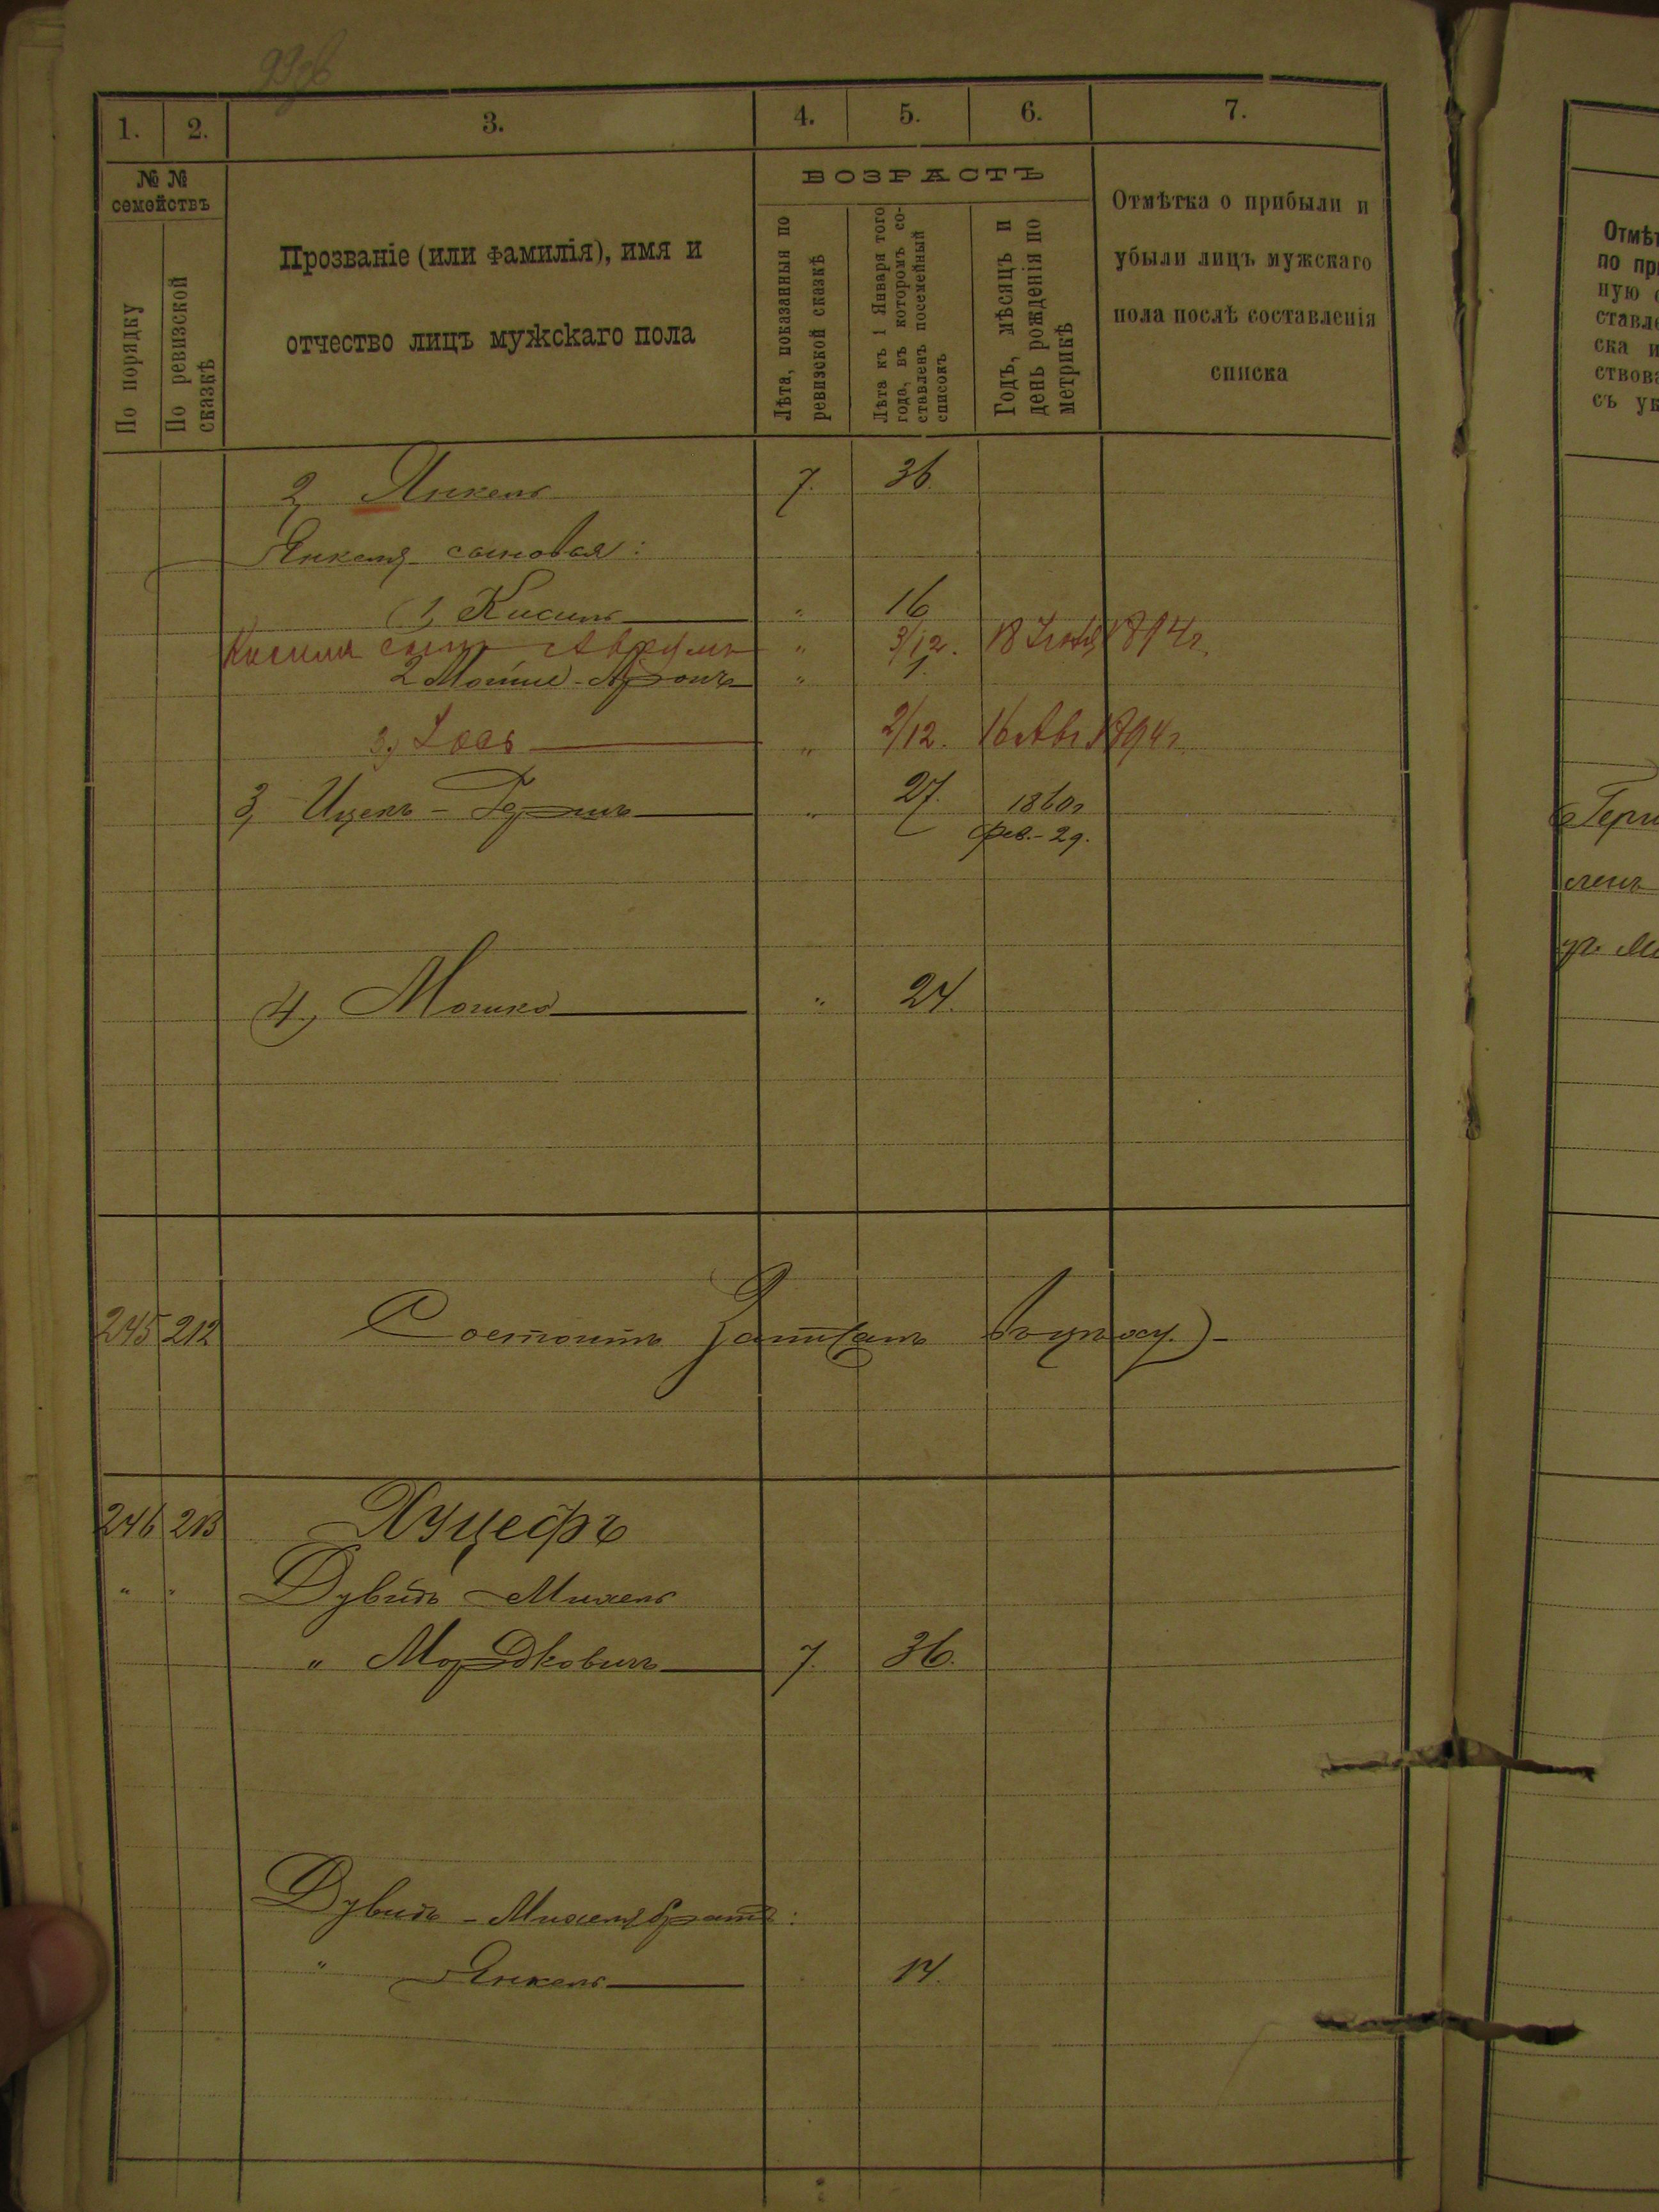 93об
1. 2. 3. 4. 5. 6. 7.
№ №
семействъ
По порядку
По ревизской
сказкѣ
Прозваніе (или фамилія), имя и
отчество лицъ мужскаго пола
ВОЗРАСТЪ
Лѣта, показанныя по
ревизской сказкѣ
Лѣта къ 1 Января того
года, въ которомъ со-
ставленъ посемейный
списокъ
Годъ, мѣсяцъ и
день рожденія по
метрикѣ
Отмѣтка о прибыли и
убыли лицъ мужскаго
пола послѣ составленія
списка
2, Янкель 7. 36.
Янкеля сыновья:
1, Кисиль " 16
Кисиля сынъ Аврумъ " 3/12. 18 1894г.
2 Мошие-Аронъ " 1.
3, " 2/12. 16 Авг 1894г.
3, Ицекъ-Гершъ " 27. 1860г
Фев.-29.
4, Мошко " 24.
245 212 Состоитъ
246 213 Хуцефъ
" " Дувидъ-Михель
" Мордковичъ 7. 36.
Дувидъ-Михеля братъ:
" Янкель 14.
Отмѣт
по при
ную
ставле
ска и
ствова
съ ук
Герш